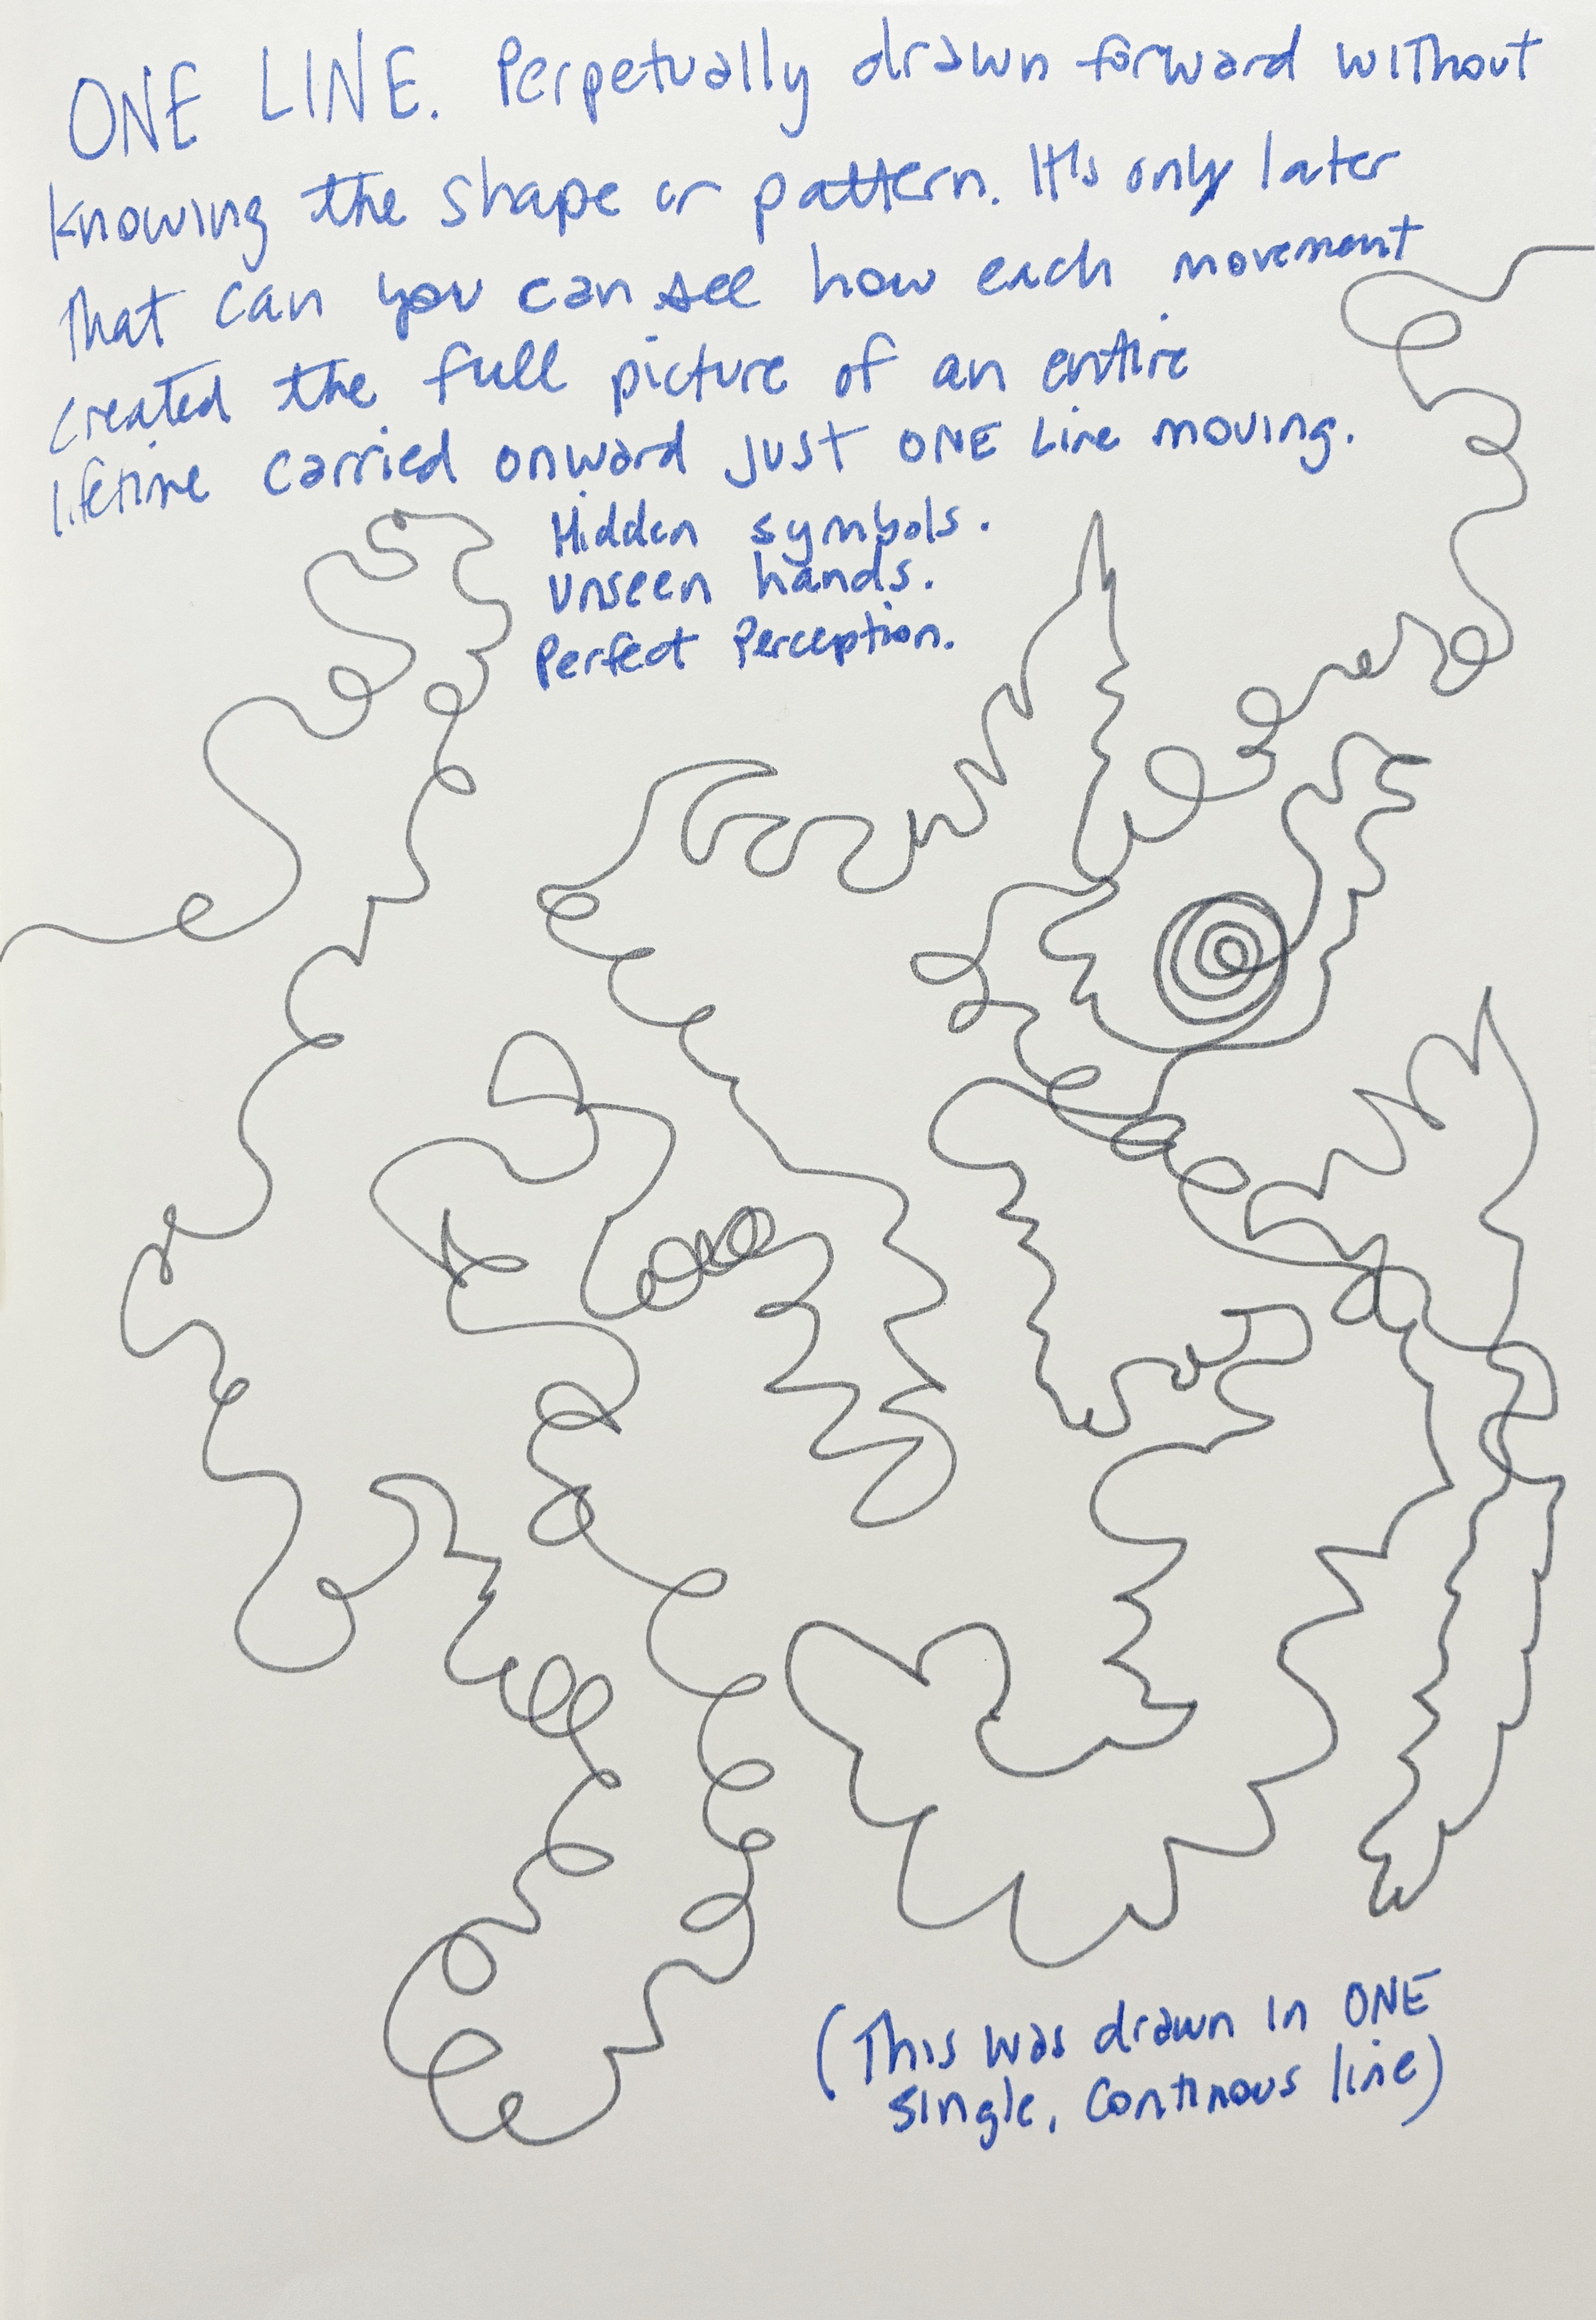 ONE LINE. Perpetually drawn forward without
knowing the shape or pattern. It's only later
that can you can see how each movement
created the full picture of an entire
lifetime carried onward just ONE Line moving.
Hidden symbols.
Unseen hands.
Perfect Perception.
(This was drawn in ONE
single, continous line)